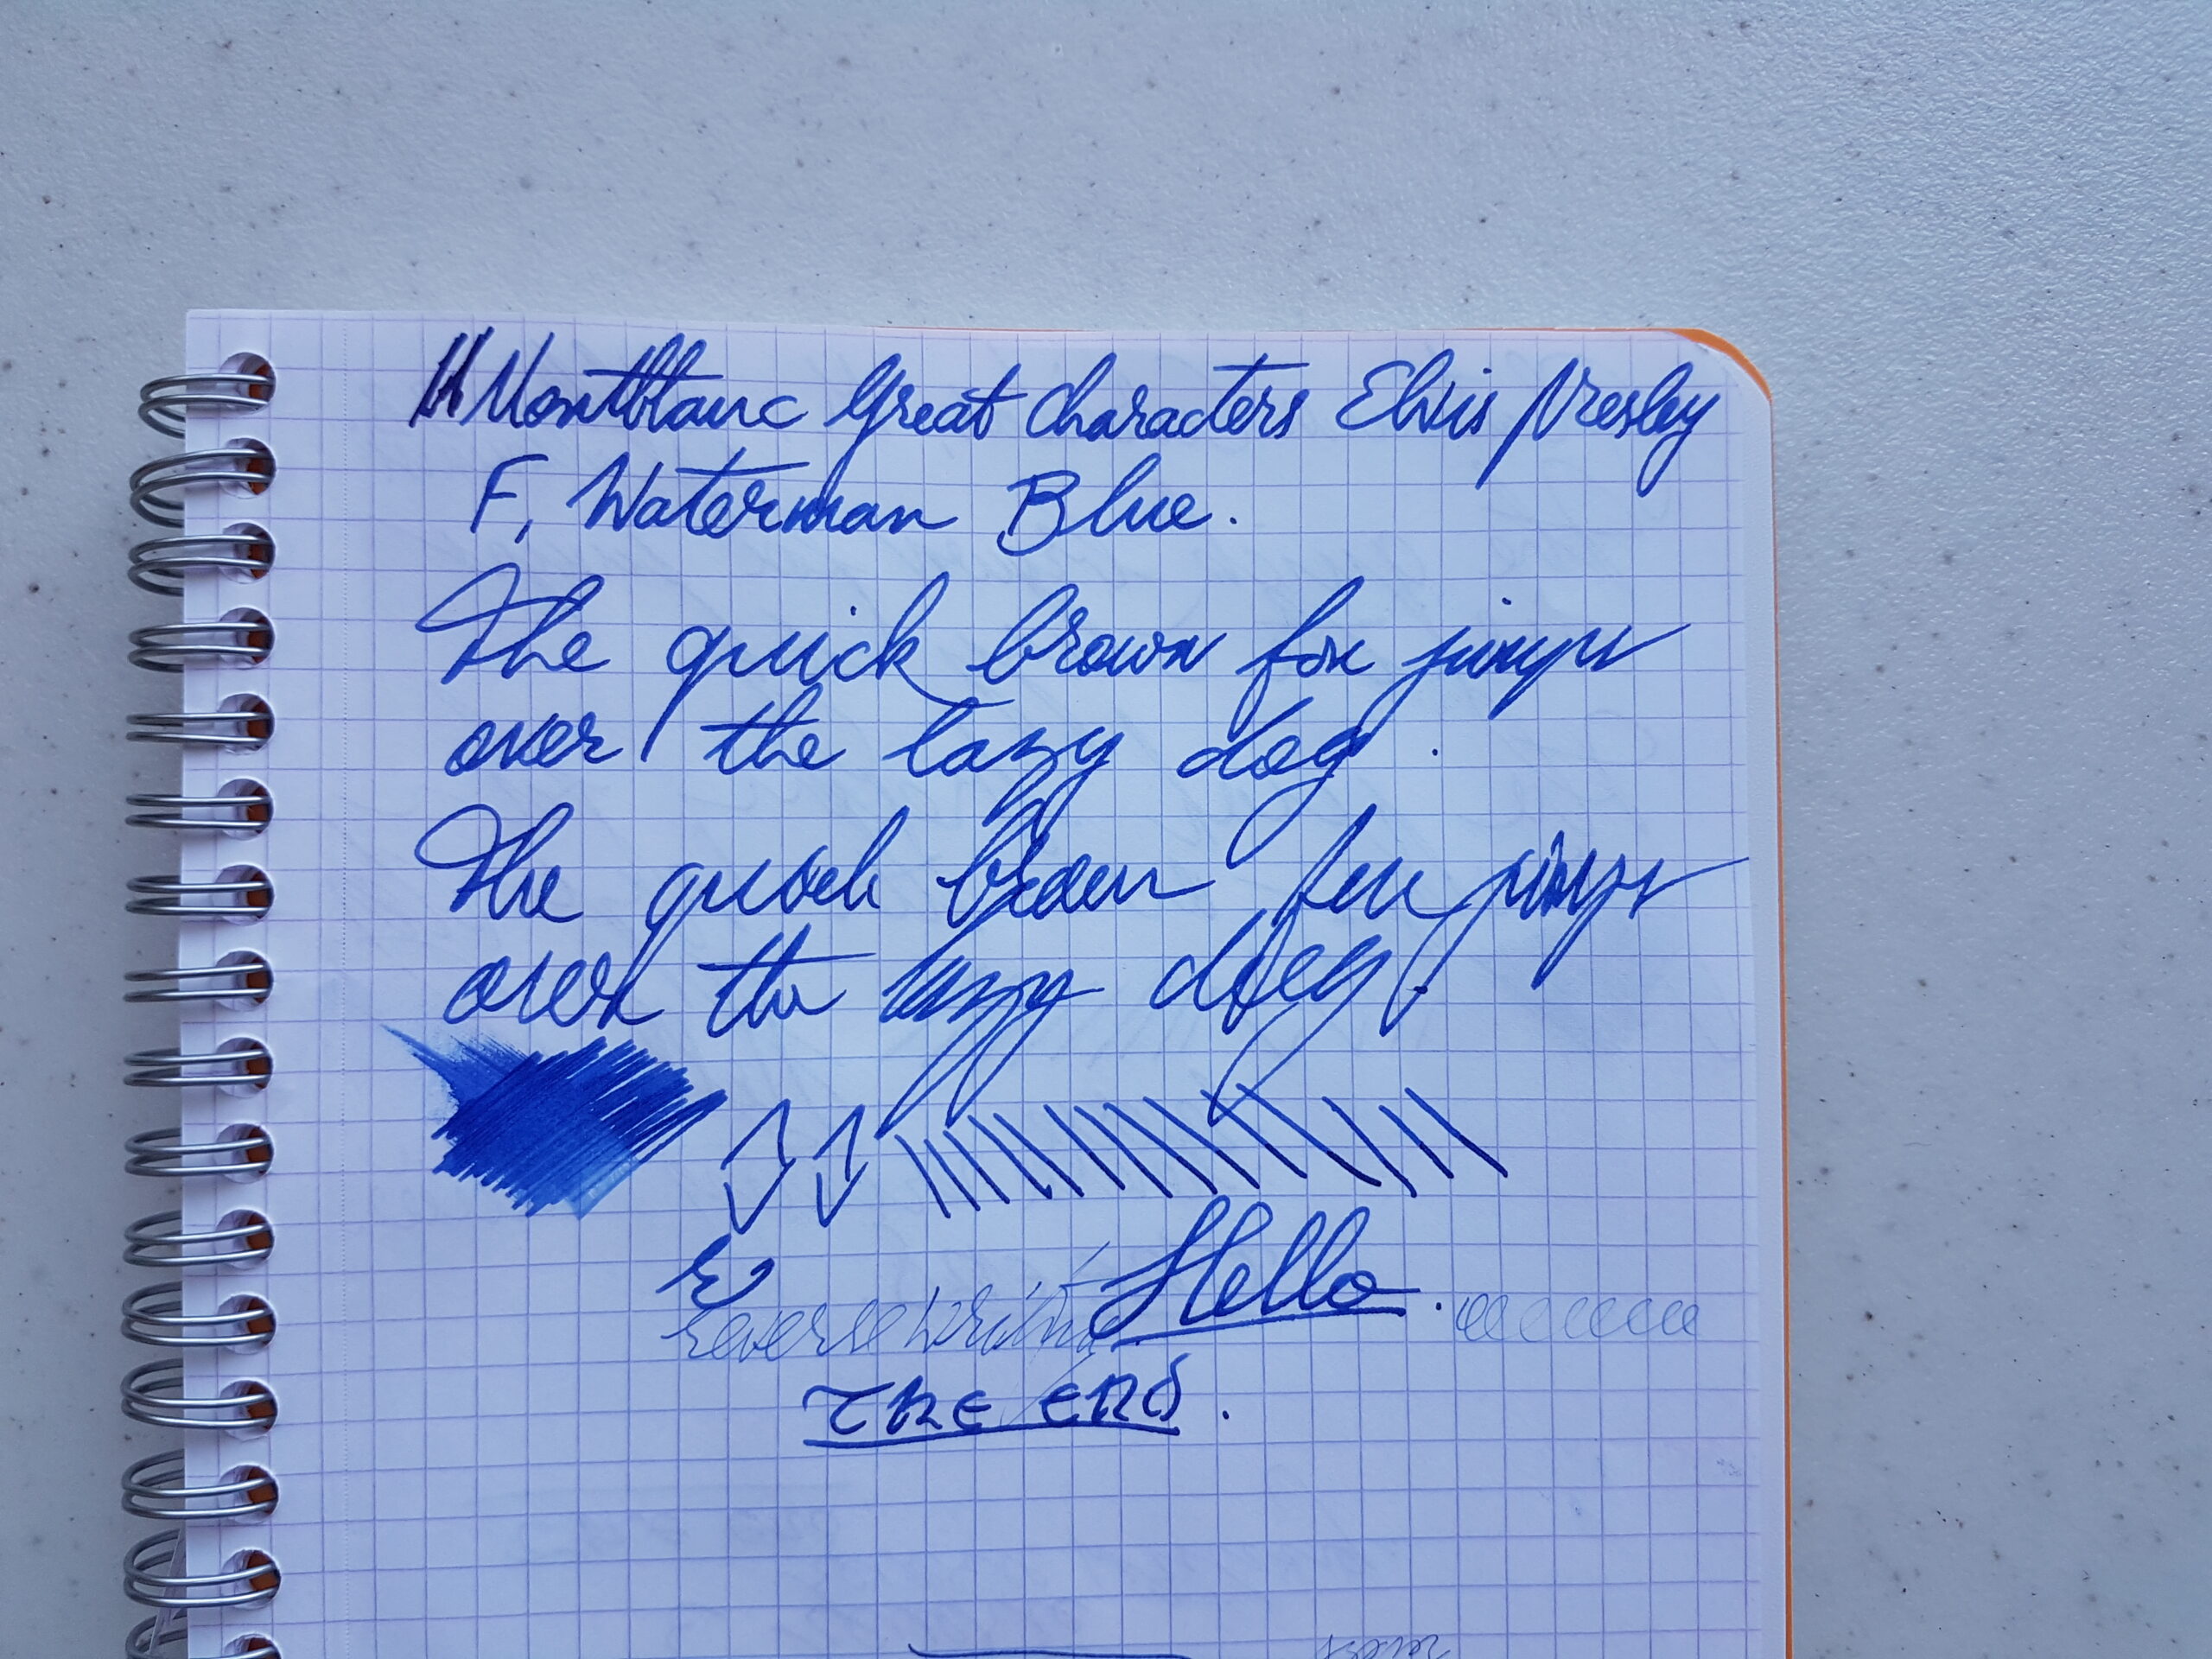 Montblanc Great Characters Elvis Presley
F, Waterman Blue.
The quick brown fox jumps
over the lazy dog.
The quick brown fox jumps
over the lazy dog.
Hello.
Reverse writing
The end.